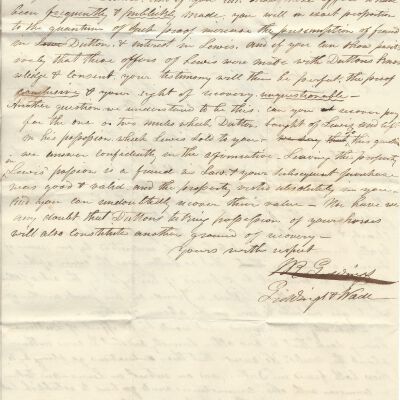 been frequently & publickly made, you will in exact proportion
to the quantum of such proof increase the presumption of fraud
in Dutton, & interest in Lewis. And if you can show posi-
tively that these offers of Lewis were made with Duttons know-
ledge & consent your testimony will then be perfect, the proof
conclusive & your right of recovery unquestionable -
Another question we understand to be this. can you recover pay
for the one or two mules which Dutton bought of Lewis and left
in his possession, which Lewis sold to you - this question
we answer confidently in the affirmative. Leaving the property
in Lewis' possession is a fraud in Law & your subsequent purchase
was good & valid and the property vested absolutely in you,
And you can undoubtedly recover their value - Nor have we
any doubt that Duttons taking possession of your horses
will also constitute another ground of recovery -
Yours with respect
Giddings & Wade